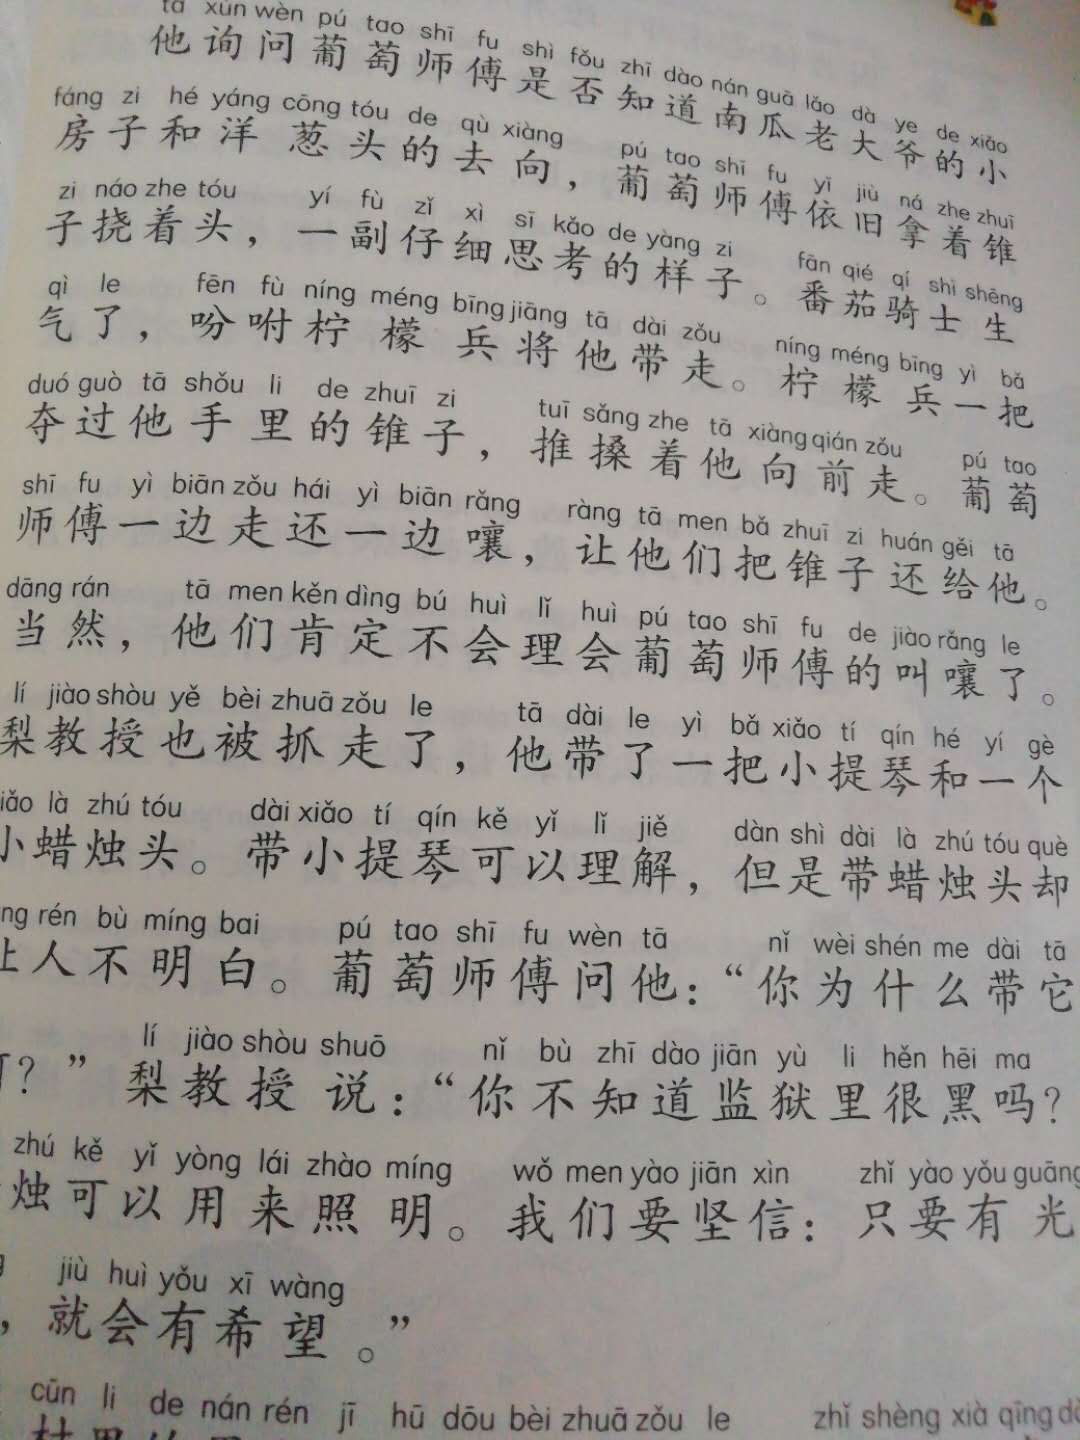 tā xún wèn pú tao shī fu shì fǒu zhī dào nán guā lǎo dà ye de xiǎo
他询问葡萄师傅是否知道南瓜老大爷的小
fáng zi hé yáng cōng tóu de qù xiàng pú tao shī fu yī jiù ná zhe zhuī
房子和洋葱头的去向，葡萄师傅依旧拿着锥
zi náo zhe tóu yí fù zǐ xì sī kǎo de yàng zi fān qié qí shì shēng
子挠着头，一副仔细思考的样子。番茄骑士生
qì le fēn fù níng méng bīng jiāng tā dài zǒu níng méng bīng yì bǎ
气了，吩咐柠檬兵将他带走。柠檬兵一把
duó guò tā shǒu li de zhuī zi tuī sǎng zhe tā xiàng qián zǒu pú tao
夺过他手里的锥子，推搡着他向前走。葡萄
shī fu yì biān zǒu hái yì biān rǎng ràng tā men bǎ zhuī zi huán gěi tā
师傅一边走还一边嚷，让他们把锥子还给他。
dāng rán tā men kěn dìng bú huì lǐ huì pú tao shī fu de jiào rǎng le
当然，他们肯定不会理会葡萄师傅的叫嚷了。
lí jiào shòu yě bèi zhuā zǒu le tā dài le yì bǎ xiǎo tí qín hé yí gè
梨教授也被抓走了，他带了一把小提琴和一个
iǎo là zhú tóu dài xiǎo tí qín kě yǐ lǐ jiě dàn shì dài là zhú tóu què
小蜡烛头。带小提琴可以理解，但是带蜡烛头却
ng rén bù míng bai pú tao shī fu wèn tā nǐ wèi shén me dài tā
让人不明白。葡萄师傅问他：“你为什么带它
lí jiào shòu shuō nǐ bù zhī dào jiān yù li hěn hēi ma
？”梨教授说：“你不知道监狱里很黑吗？
zhú kě yǐ yòng lái zhào míng wǒ men yào jiān xìn zhǐ yào yǒu guāng
烛可以用来照明。我们要坚信：只要有光
jiù huì yǒu xī wàng
，就会有希望。”
cūn li de nán rén jī hū dōu bèi zhuā zǒu le zhǐ shèng xià qīng